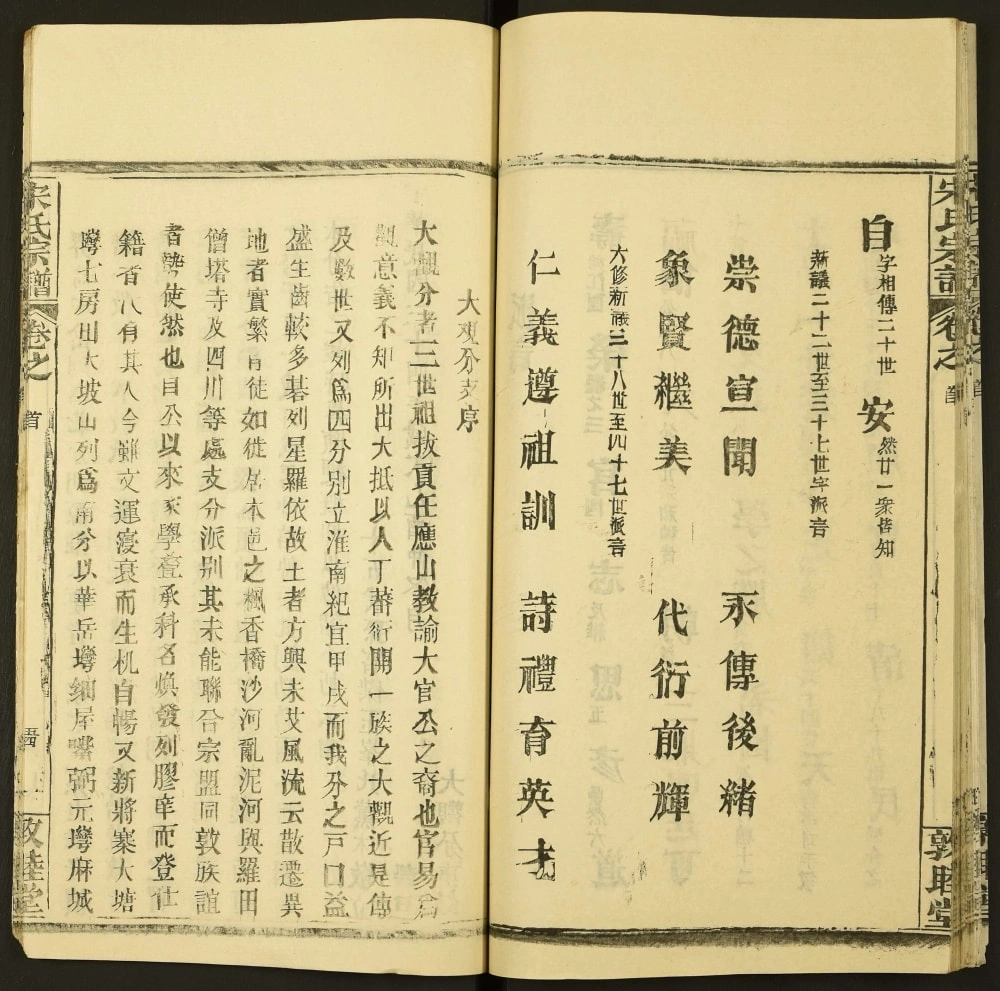 宋氏宗譜
卷之
首
敦睦堂
自 字相傳二十世 安 然廿一衆皆知
新議二十二世至三十七世字派音
崇德宣聞 永傳後緒
象賢繼美 代衍前輝
六修新議三十八世至四十七世派音
仁義遵祖訓 詩禮育英才
大观分支序
大觀分者三世祖拔貢任應山教諭大官公之裔也官易爲
觀意義不知所出大抵以人丁蕃衍開一族之大觀近是傳
及數世又列爲四分别立淮南紀宜甲戌而我分之戸口益
盛生齒較多碁列星羅依故土者方興未艾風流云散遷異
地者實繁有徒如徙居本邑之楓香橋沙河亂泥河與羅田
僧塔寺及四川等處支分派别其未能聯合宗盟同敦族誼
者勢使然也自公以來家學叠承科名煥發列膠庠而登仕
籍者代有其人今雖文運寖衰而生机自暢又新將寨大塘
塆七房田大坡山列爲兩分以華岳塆細屋嘴弼元塆麻城
宋氏宗譜
卷之
首
敦睦堂